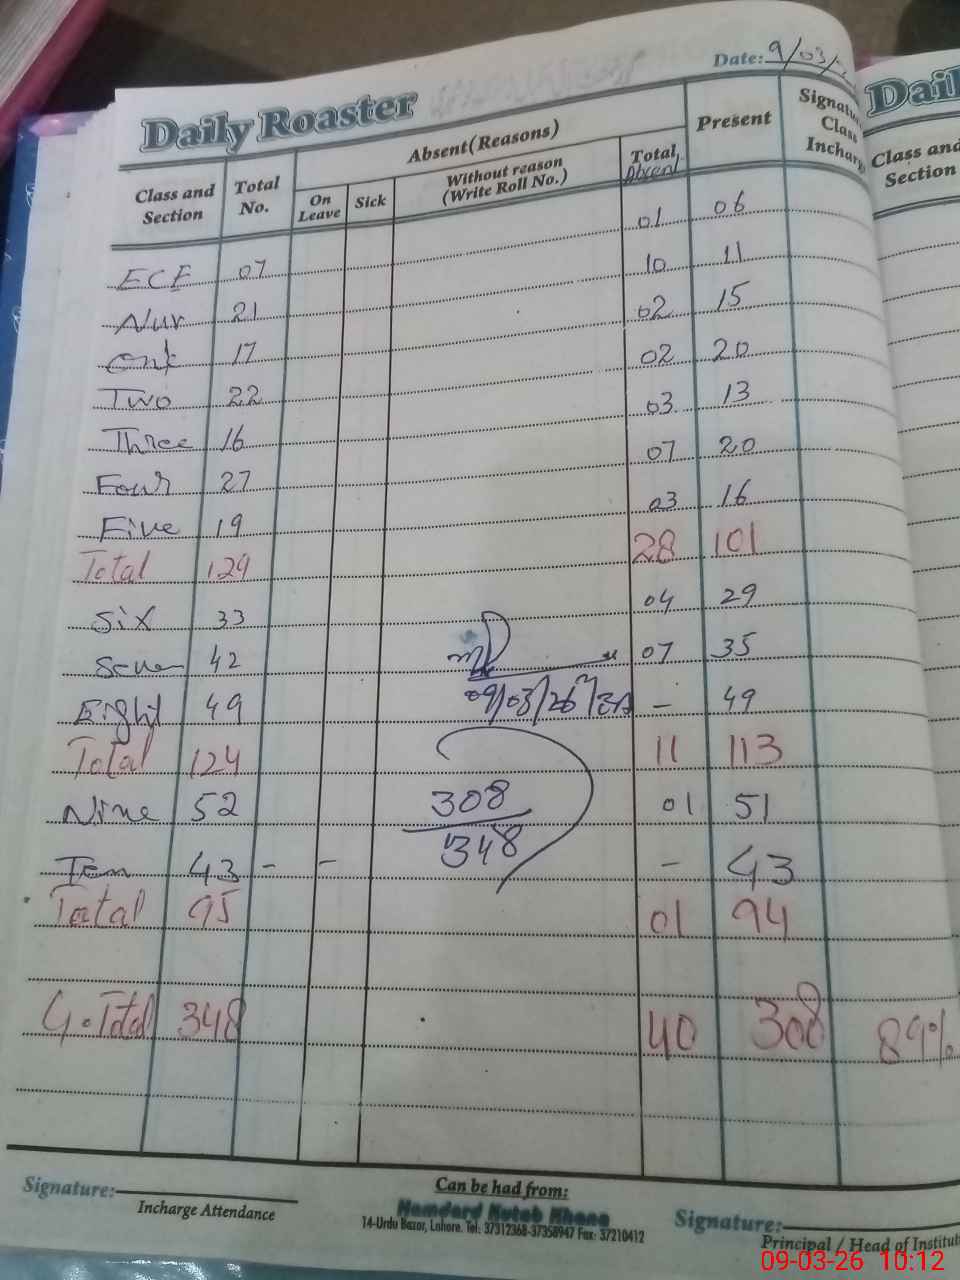 Date: 9/03/
Daily Roaster
Class and Section Total No. Absent(Reasons) On Leave Sick Without reason (Write Roll No.) Total Absent Present Signature Class Incharge
ECE 07 01 06
Nur 21 10 11
One 17 02 15
Two 22 02 20
Three 16 03 13
Four 27 07 20
Five 19 03 16
Total 129 28 101
Six 33 04 29
Seven 42 07 35
Eight 49 – 49
09/03/26
Total 124 11 113
Nine 52 01 51
308
348
Ten 43 - - – 43
Total 95 01 94
G.Total 348 40 308 89%
Signature:
Incharge Attendance
Can be had from:
Hamdard Kutab Khana
14-Urdu Bazar, Lahore. Tel: 37312368-37358947 Fax: 37210412
Signature:
Principal / Head of Institut
Dail
Class and Section
09-03-26 10:12